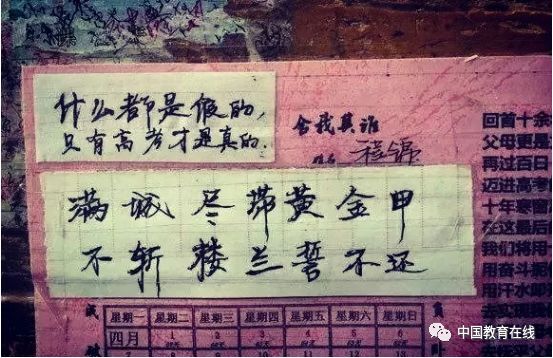 什么都是假的,
只有高考才是真的.
舍我其谁
姓名 程锦
满城尽带黄金甲
不斩楼兰誓不还
回首十余
父母更是
再过百日
迈进高考
十年寒窗
在这最后
我们将用
用奋斗拒
用汗水即
星期一 星期二 星期三 星期四 星期五 星期六 星期日
四月 1 2 3 4 5 6
中国教育在线